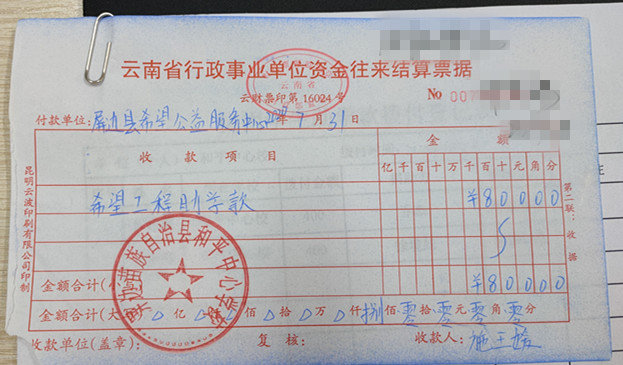 云南省行政事业单位资金往来结算票据
云财票印第 16024号
No 00
付款单位: 屏边县希望公益服务中心 年 7 月 31 日
收款项目
金额
亿 千 百 十 万 千 百 十 元 角 分
希望工程助学款
¥ 8 0 0 0 0
金额合计(
¥ 8 0 0 0 0
金额合计(大 亿 佰 拾 万 仟 捌 佰 零 拾 零 元 零 角 零 分
收款单位(盖章):
复核:
收款人:
屏边苗族自治县和平中心学校
昆明云波印刷有限公司印制
第二联:收据